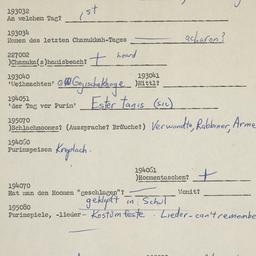 193032
An welchem Tag? 1st
193034
Nomen des letzten Chanukkah-Tages acharon?
227002
)Chanuka(s)hausbesuch? + heard
193040 193041
'Weihnachten' )Nittl?
194051
'der Tag vor Purim' Ester tanis (sic)
195070
)Schlachmones? (Aussprache? Bräuche?) Verwandte, Rabbiner, Arme
194060
Purimspeisen Kreplach.
194061
)Homentaschen? +
194070
Hat man den Hoomen "geschlagen"? Womit?
geklopft in Schul
195080
Purimspiele, -lieder- Kostümfeste. Lieder-can't remember